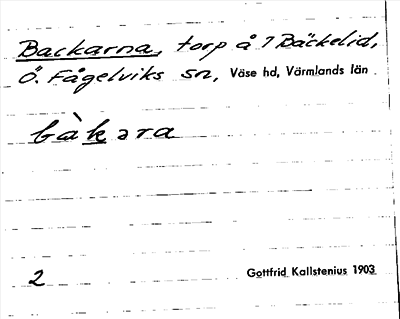 Backarna, torp å 7 Bäckelid,
Ö. Fågelviks sn, Väse hd, Värmlands län
bàkəra
2
Gottfrid Kallstenius 1903